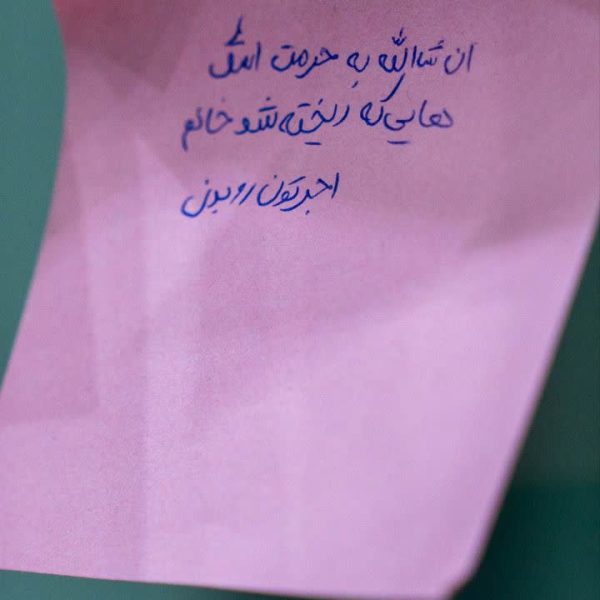 ان شاالله به حرمت اشک
هایی که ریخته شد خانم
اجرتون رو بدن